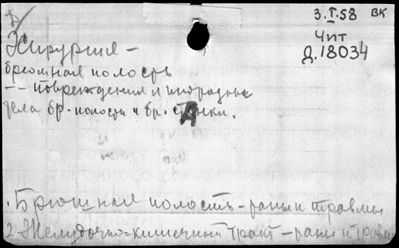 3.I.58 вк
Чит
Д.18034
Хирургия –
брюшная полость
-- повреждения и инородные
тела бр. полости и бр. стенки.
А
1. Брюшная полость – раны и травмы
2. Желудочно-кишечный тракт – раны и травмы